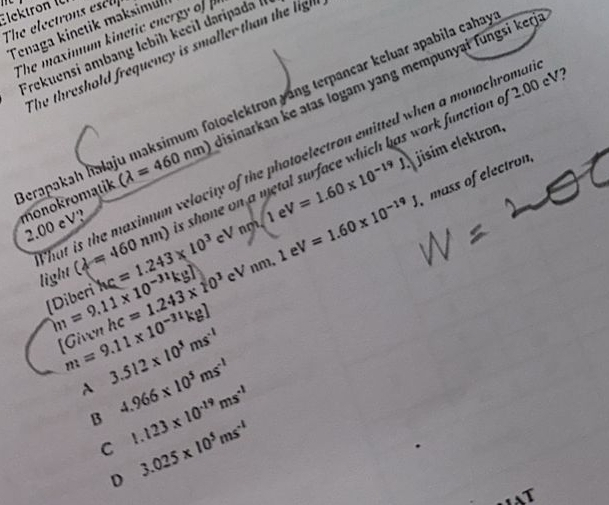 Elektron
The electrons
Tenaga kinetik maksimum
The maximum kinetic energy of
Frekuensi ambang lebih kecil daripada
The threshold frequency is smaller than the light
Berapakah halaju maksimum fotoelektron yang terpancar keluar apabila cahaya
monokromatik (λ = 460 nm) disinarkan ke atas logam yang mempunyai fungsi kerja
2.00 eV?
What is the maximum velocity of the photoelectron emitted when a monochromatic
light (λ = 460 nm) is shone on a metal surface which has work function of 2.00 eV?
[Diberi hc = 1.243 x 10³ eV nm, 1 eV = 1.60 x 10⁻¹⁹ J, jisim elektron,
m = 9.11 x 10⁻³¹kg]
[Given hc = 1.243 x 10³ eV nm, 1 eV = 1.60 x 10⁻¹⁹ J, mass of electron,
m = 9.11 x 10⁻³¹kg]
W =
A 3.512 x 10⁵ ms⁻¹
B 4.966 x 10⁵ ms⁻¹
C 1.123 x 10⁻¹⁹ ms⁻¹
D 3.025 x 10⁵ ms⁻¹